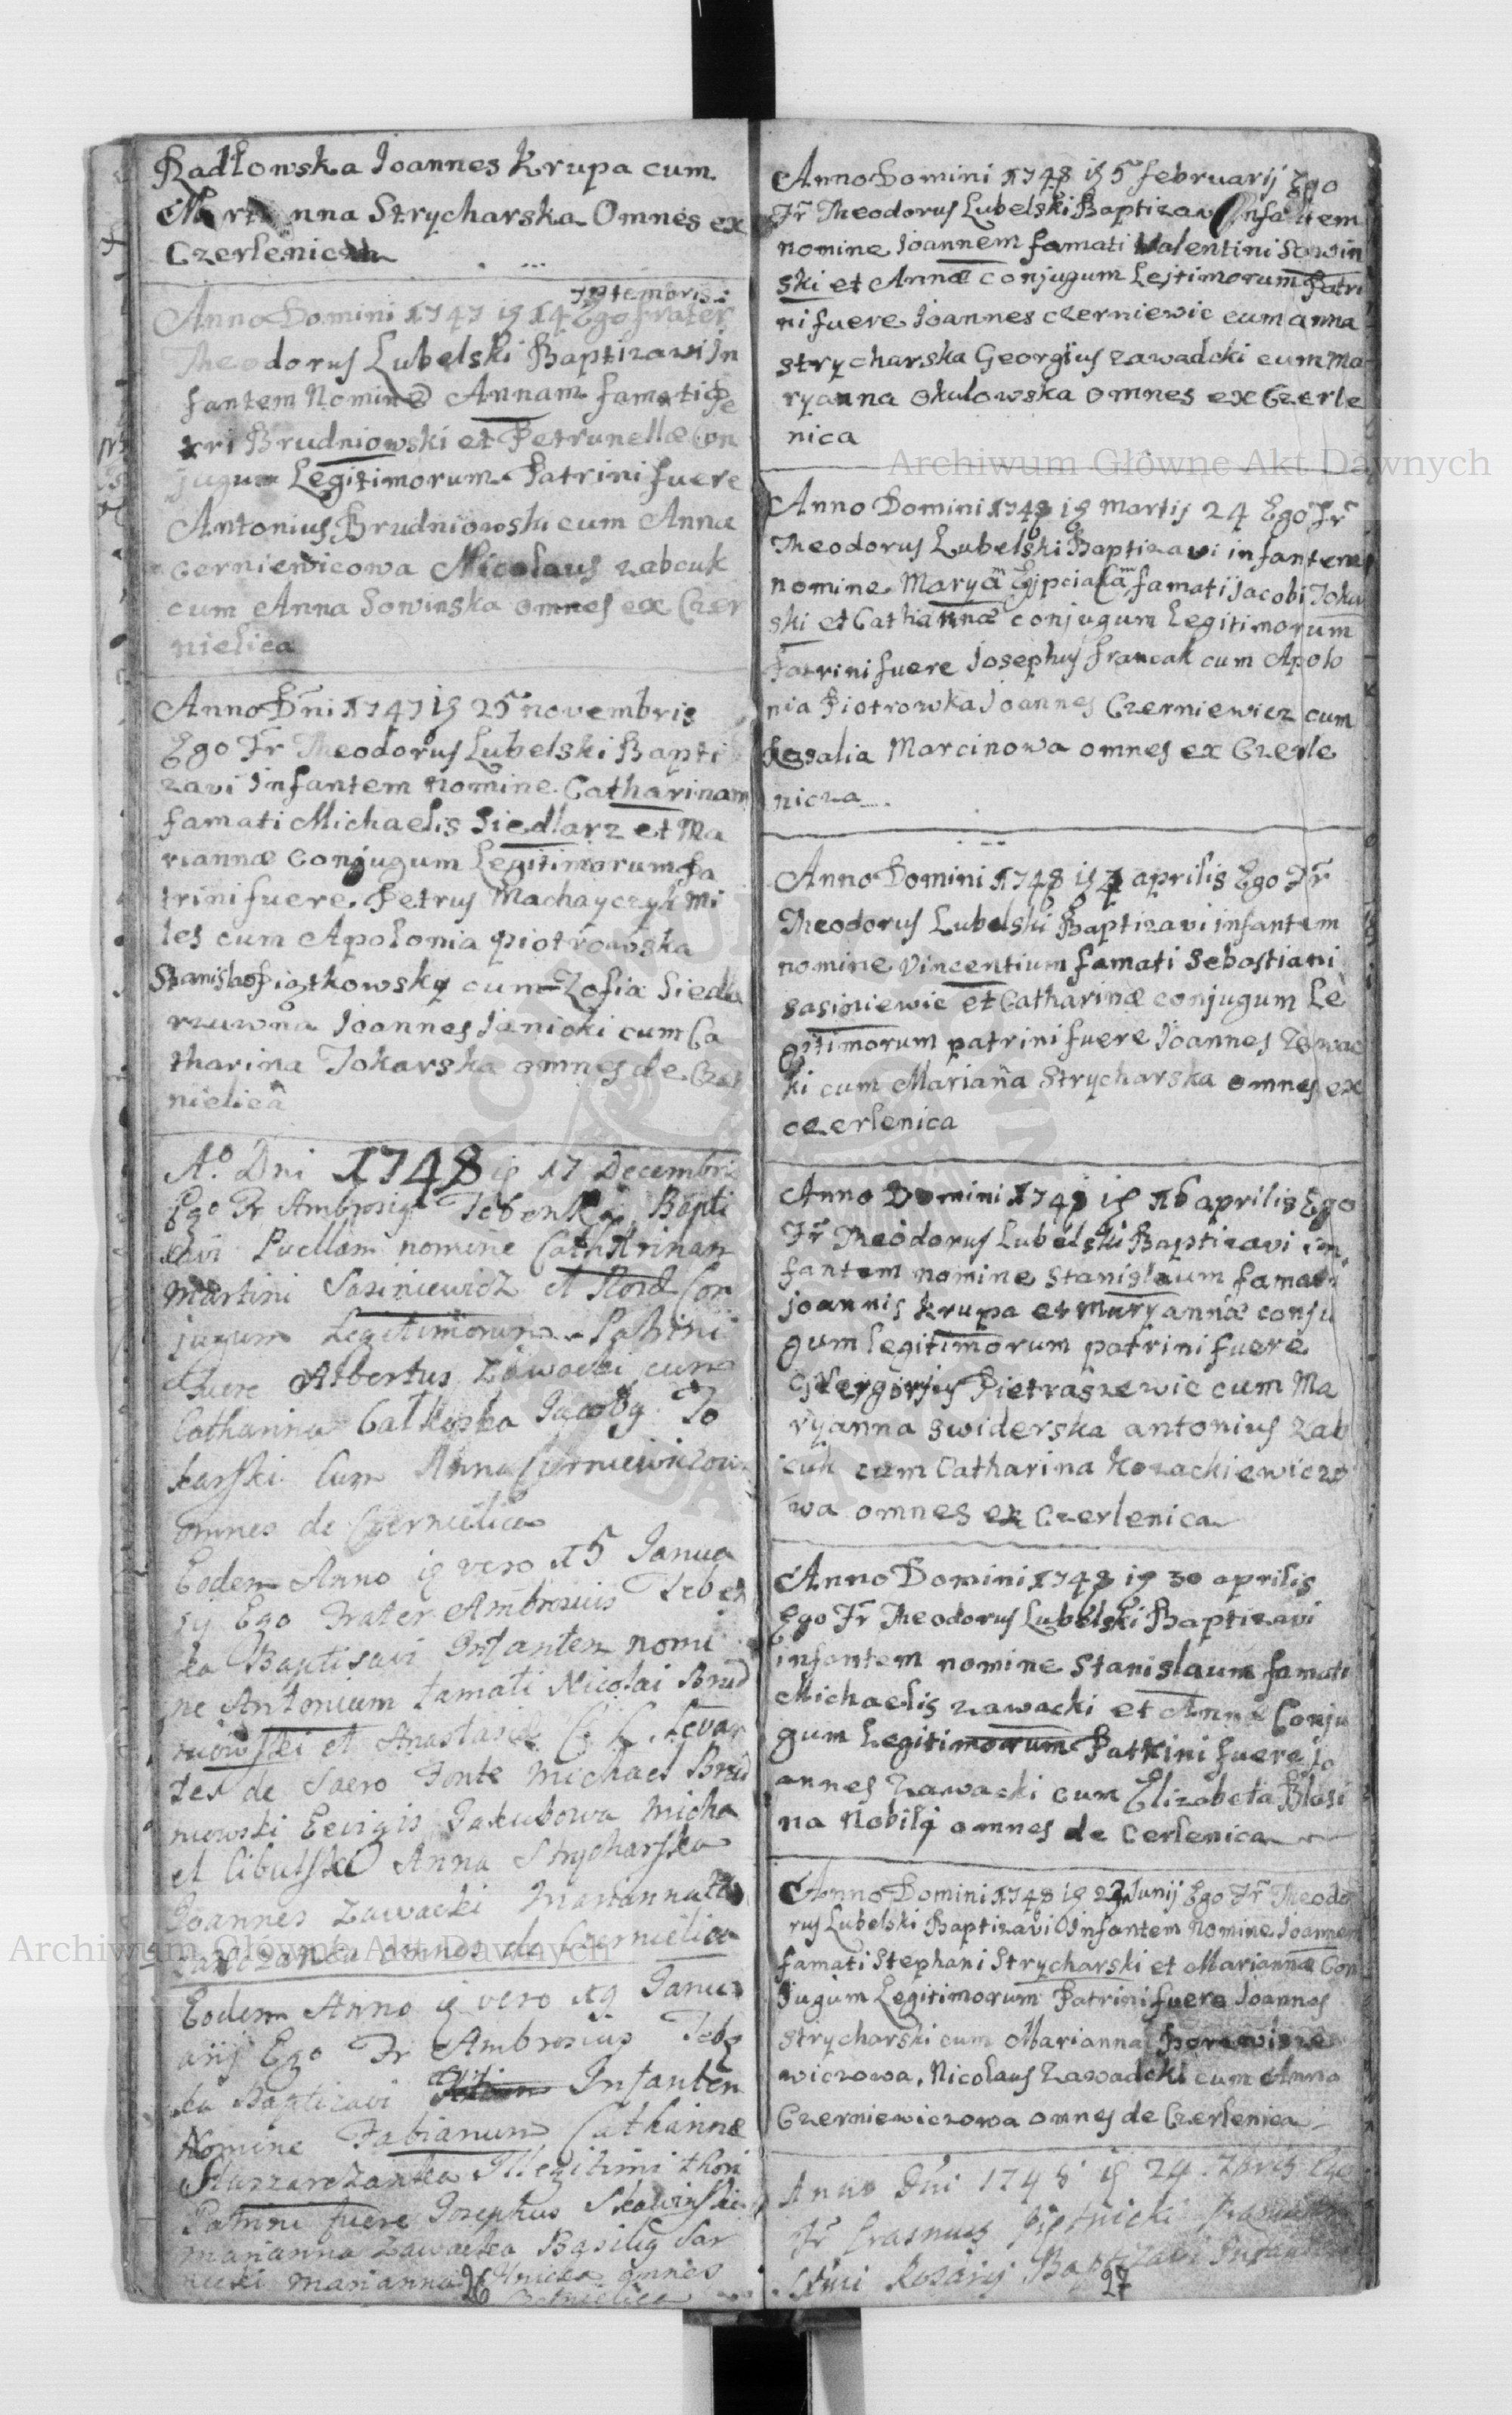 Radłowska Joannes Krupa cum
nna Strycharska Omnes ex
Czerlenicza
7temoris
Anno Domini 1747 is 14 Ego frater
Theodorus Lubelski Baptizavi In
fantem Nomine Annam famati Pe
tri Brudniowski et Petrunellæ Con
jugum Legitimorum Patrini fuere
Antonius Brudniowski cum Anna
Cerniewicowa Nicolaus zabcuk
cum Anna Sowinska omnes ex Czer
nielica
Anno Dni 1747 is 25 novembris
Ego Fr Theodorus Lubelski Bapti
zavi Infantem nomine Catharinam
famati Michaelis Siedlarz et Ma
riannæ Conjugum Legitimorum Pa
trini fuere Petrus Machayczyk Mi
les cum Apolonia piotrowska
Stanislao Piątkowsky cum Zofia Siedla
rzuwna Joannes Janicki cum Ca
tharina Tokarska omnes de Czer
nielica
Ao Dni 1748 is 17 Decembris
Ego Fr Ambrosig Bapti
zavi Puellam nomine Catharinam
Martini Sasiniewicz et Con
jugum Legitimorum Patrini
fuere Albertus Zawacki cum
Catharina Jacobg To
karski Cum Anna Czerniewiczowa
omnes de Czernielica
Eodem Anno is vero 15 Janua
rij Ego Frater Ambrosius Teben
ka Baptisavi Infantem nomi
ne Antonium famati Nicolai Brud
niowski et Anastasiæ C. L. Levan
tes de Sacro Fonte Michael Brud
niowski Jakubowa Micha
el Anna Strycharska
Joannes Zawacki Marianna
omnes de Czernielica
Eodem Anno is vero 19 Janu
arij Ego Fr Ambrosius Teben
ka Baptizavi Infantem
Nomine Fabianum Catharinæ
Illegitimi thori
Patrini fuere Josephus Skawinski
Marianna Zawacka Basilig Sar
nicki Marianna omnes
26
Anno Domini 1748 is 5 februarij Ego
Fr Theodorus Lubelski Baptizavi Infantem
nomine Joannem famati Valentini Sowin
ski et Annæ conjugum Lejtimorum Patri
ni fuere Joannes czerniewic cum anna
strycharska Georgius zawadcki cum Ma
ryanna okulowska omnes ex Czerle
nica
Anno Domini 1748 is martij 24 Ego Fr
Theodorus Lubelski Baptizavi infantem
nomine Maryam famati Jacobi Tokar
ski et Catharinæ conjugum Legitimorum
Patrini fuere Josephus francak cum Apolo
nia Piotrowka Joannes Czerniewicz cum
Rosalia Marcinowa omnes ex Czerle
nicza
Anno Domini 1748 is 7 aprilis Ego Fr
Theodorus Lubelski Baptizavi infantem
nomine Vincentium famati Sebastiani
sasiniewic et Catharinæ conjugum Le
gitimorum patrini fuere Joannes Zawac
ki cum Marianna Strycharska omnes ex
czerlenica
Anno Domini 1748 is 16 aprilis Ego
Fr Theodorus Lubelski Baptizavi in
fantem nomine Stanislaum famati
joannis krupa et Maryannæ conju
gum legitimorum patrini fuere
Pietraszewic cum Ma
ryanna swiderska antonius zab
cuk cum Catharina Kozackiewiczo
wa omnes ex Czerlenica
Anno Domini 1748 is 30 aprilis
Ego Fr Theodorus Lubelski Baptizavi
infantem nomine Stanislaum famati
Michaelis zawacki et Annæ Conju
gum Legitimorum Patrini fuere Jo
annes Zawacki cum Elizabeta Blasi
na Nobilj omnes de Cerlenica
Anno Domini 1748 is Junij Ego Fr Theodo
rus Lubelski Baptizavi Infantem Nomine Joannem
famati Stephani Strycharski et Mariannæ Con
jugum Legitimorum Patrini fuere Joannes
Strycharski cum Marianna
wiczowa, Nicolaus Zawadcki cum Anna
Czerniewiczowa omnes de Czerlenica
Anno Dni 1748 is 24 7bris Ego
Fr Erasmus
Rosarij Baptizavi Infantem
27
Archiwum Główne Akt Dawnych
Archiwum Główne Akt Dawnych